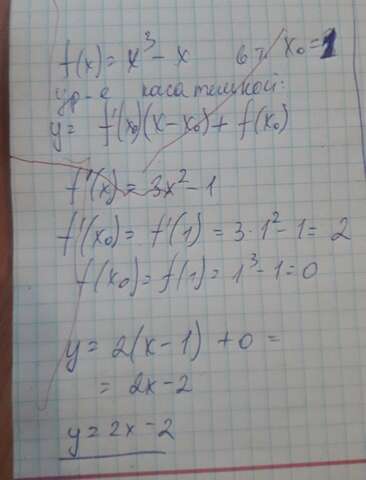 f(x) = x³ - x в т. x₀ = 1
ур-е касательной:
y = f'(x₀)(x - x₀) + f(x₀)
f'(x) = 3x² - 1
f'(x₀) = f'(1) = 3·1² - 1 = 2
f(x₀) = f(1) = 1³ - 1 = 0
y = 2(x - 1) + 0 =
= 2x - 2
y = 2x - 2